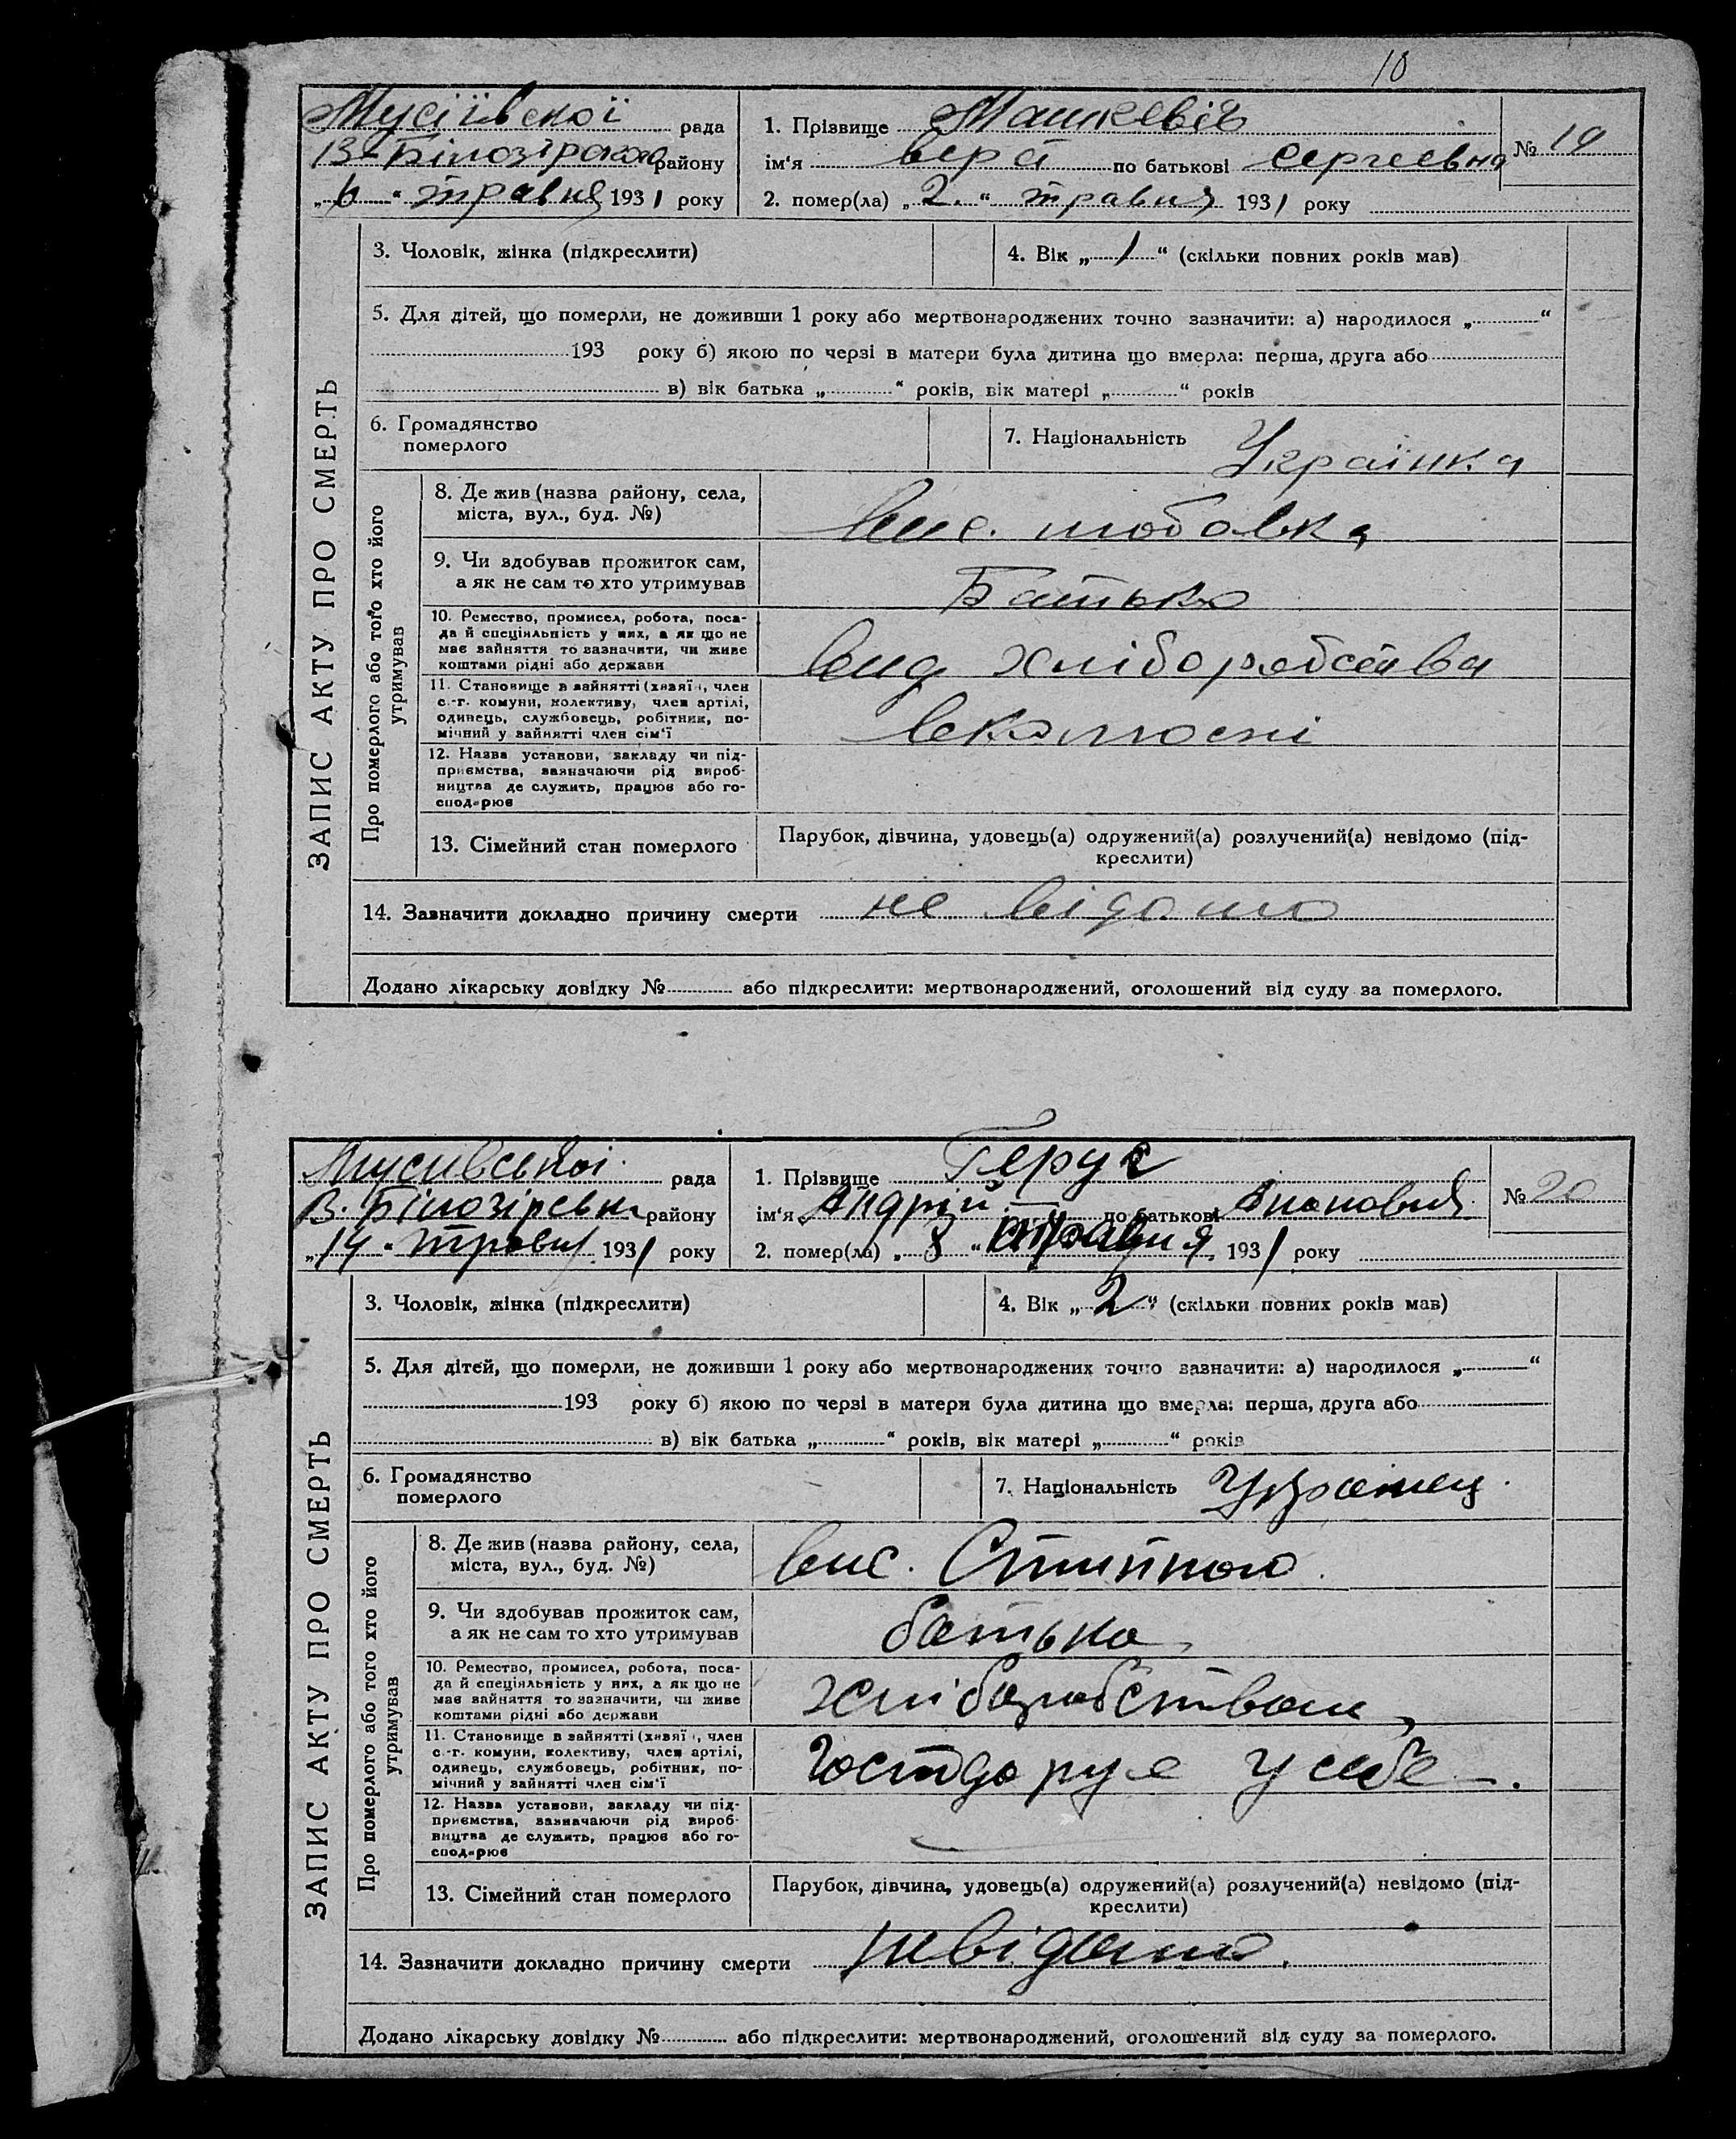 10
Мусіївскої рада
В-Білозірского району
„ 6 “ травня 1931 року
1. Прізвище Машкевіч
ім‘я вера по батькові сергеевна
№ 19
2. помер(ла) „ 2. “ травня 1931 року
3. Чоловік, жінка (підкреслити)
4. Вік „ 1 “ (скільки повних років мав)
5. Для дітей, що померли, не доживши 1 року або мертвонароджених точно зазначити: а) народилося „ “
193 року б) якою по черзі в матери була дитина що вмерла: перша, друга або
в) вік батька „ “ років, вік матері „ “ років
6. Громадянство
померлого
7. Національність Українка
ЗАПИС АКТУ ПРО СМЕРТЬ
Про померлого або того хто його
утримував
8. Де жив (назва району, села,
міста, вул., буд. №)
9. Чи здобував прожиток сам,
а як не сам то хто утримував
Батько
10. Ремество, промисел, робота, поса-
да й спеціяльність у них, а як що не
має зайняття то зазначити, чи живе
коштами рідні або держави
хліборобства
11. Становище в зайнятті (хазяї , член
с.-г. комуни, колективу, член артілі,
одинець, службовець, робітник, по-
мічний у зайнятті член сім‘ї
12. Назва установи, закладу чи під-
приємства, зазначаючи рід вироб-
ництва де служить, працює або го-
сподарює
13. Сімейний стан померлого
Парубок, дівчина, удовець(а) одружений(а) розлучений(а) невідомо (під-
креслити)
14. Зазначити докладно причину смерти не відомо
Додано лікарську довідку № або підкреслити: мертвонароджений, оголошений від суду за померлого.
Мусивської рада
В. Білозірськ району
„ 14 “ травня 1931 року
1. Прізвище Герус
ім‘я Андрій по батькові
№ 20
2. помер(ла) „ 8 “ травня 1931 року
3. Чоловік, жінка (підкреслити)
4. Вік „ 2 “ (скільки повних років мав)
5. Для дітей, що померли, не доживши 1 року або мертвонароджених точно зазначити: а) народилося „ “
193 року б) якою по черзі в матери була дитина що вмерла: перша, друга або
в) вік батька „ “ років, вік матері „ “ років
6. Громадянство
померлого
7. Національність Украінец.
ЗАПИС АКТУ ПРО СМЕРТЬ
Про померлого або того хто його
утримував
8. Де жив (назва району, села,
міста, вул., буд. №)
9. Чи здобував прожиток сам,
а як не сам то хто утримував
батько
10. Ремество, промисел, робота, поса-
да й спеціяльність у них, а як що не
має зайняття то зазначити, чи живе
коштами рідні або держави
хліборобством
11. Становище в зайнятті (хазяї , член
с.-г. комуни, колективу, член артілі,
одинець, службовець, робітник, по-
мічний у зайнятті член сім‘ї
Господарує у себе.
12. Назва установи, закладу чи під-
приємства, зазначаючи рід вироб-
ництва де служить, працює або го-
сподарює
13. Сімейний стан померлого
Парубок, дівчина, удовець(а) одружений(а) розлучений(а) невідомо (під-
креслити)
14. Зазначити докладно причину смерти невідомо.
Додано лікарську довідку № або підкреслити: мертвонароджений, оголошений від суду за померлого.